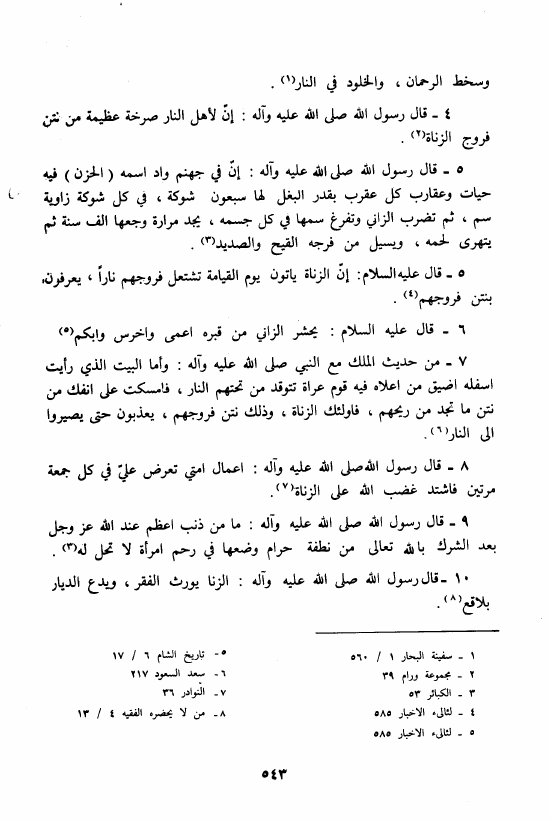 وسخط الرحمان ، والخلود في النار(١) .
٤ ـ قال رسول الله صلى الله عليه وآله : إنّ لأهل النار صرخة عظيمة من نتن
فروج الزناة(٢) .
٥ ـ قال رسول الله صلى الله عليه وآله : إنّ في جهنم واد اسمه ( الحزن ) فيه
حيات وعقارب كل عقرب بقدر البغل لها سبعون شوكة ، في كل شوكة زاوية
سم ، ثم تضرب الزاني وتفرغ سمها في كل جسمه ، يجد مرارة وجعها الف سنة ثم
يتهرى لحمه ، ويسيل من فرجه القيح والصديد(٣) .
٥ ـ قال عليه السلام : إنّ الزناة ياتون يوم القيامة تشتعل فروجهم ناراً ، يعرفون
بنتن فروجهم(٤) .
٦ ـ قال عليه السلام : يحشر الزاني من قبره اعمى واخرس وابكم(٥)
٧ ـ من حديث الملك مع النبي صلى الله عليه وآله : وأما البيت الذي رأيت
اسفله اضيق من اعلاه فيه قوم عراة تتوقد من تحتهم النار ، فامسكت على انفك من
نتن ما تجد من ريحهم ، فاولئك الزناة ، وذلك نتن فروجهم ، يعذبون حتى يصيروا
الى النار(٦) .
٨ ـ قال رسول الله صلى الله عليه وآله : اعمال امتي تعرض عليّ في كل جمعة
مرتين فاشتد غضب الله على الزناة(٧) .
٩ ـ قال رسول الله صلى الله عليه وآله : ما من ذنب اعظم عند الله عز وجل
بعد الشرك بالله تعالى من نطفة حرام وضعها في رحم امرأة لا تحل له(٣) .
١٠ ـ قال رسول الله صلى الله عليه وآله : الزنا يورث الفقر ، ويدع الديار
بلاقع(٨) .
١ ـ سفينة البحار ١ / ٥٦٠
٢ ـ مجموعة ورام ٣٩
٣ ـ الكبائر ٥٣
٤ ـ لئالىء الاخبار ٥٨٥
٥ ـ لئالىء الاخبار ٥٨٥
٥ـ تاريخ الشام ٦ / ١٧
٦ـ سعد السعود ٢١٧
٧ـ النّوادر ٣٦
٨ـ من لا يحضره الفقيه ٤ / ١٣
٥٤٣